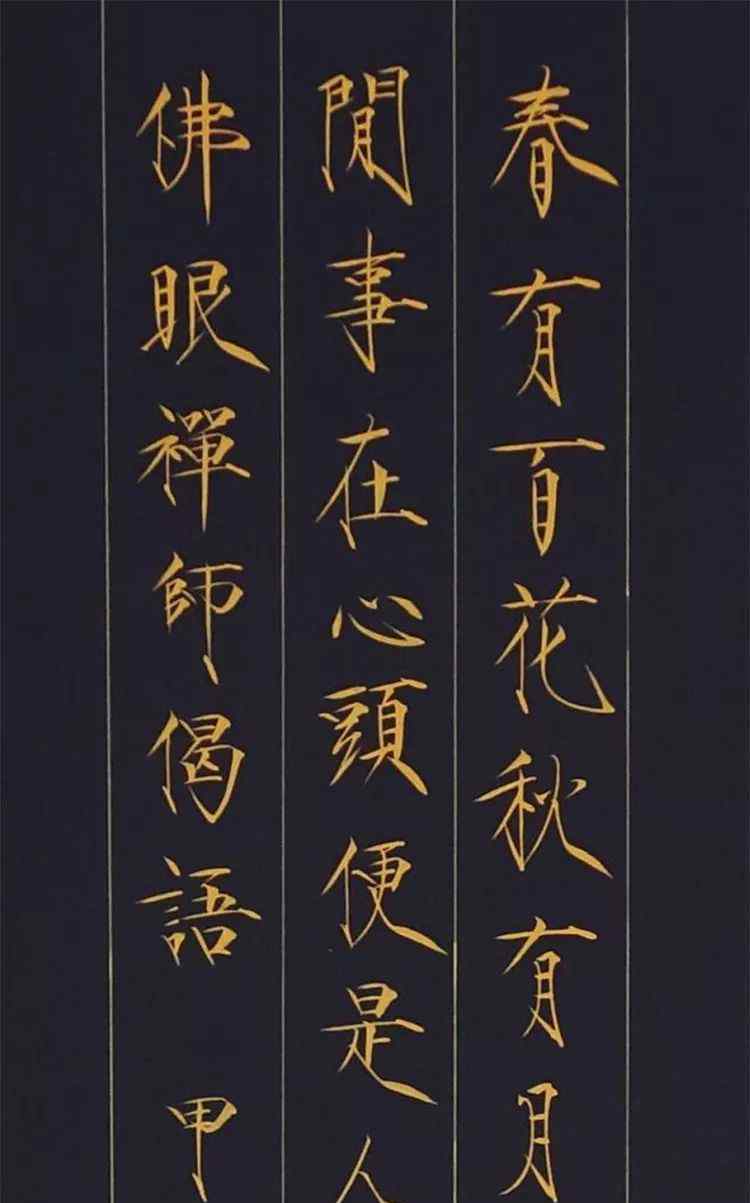 春有百花秋有月
閒事在心頭便是人
佛眼禪師偈語 甲